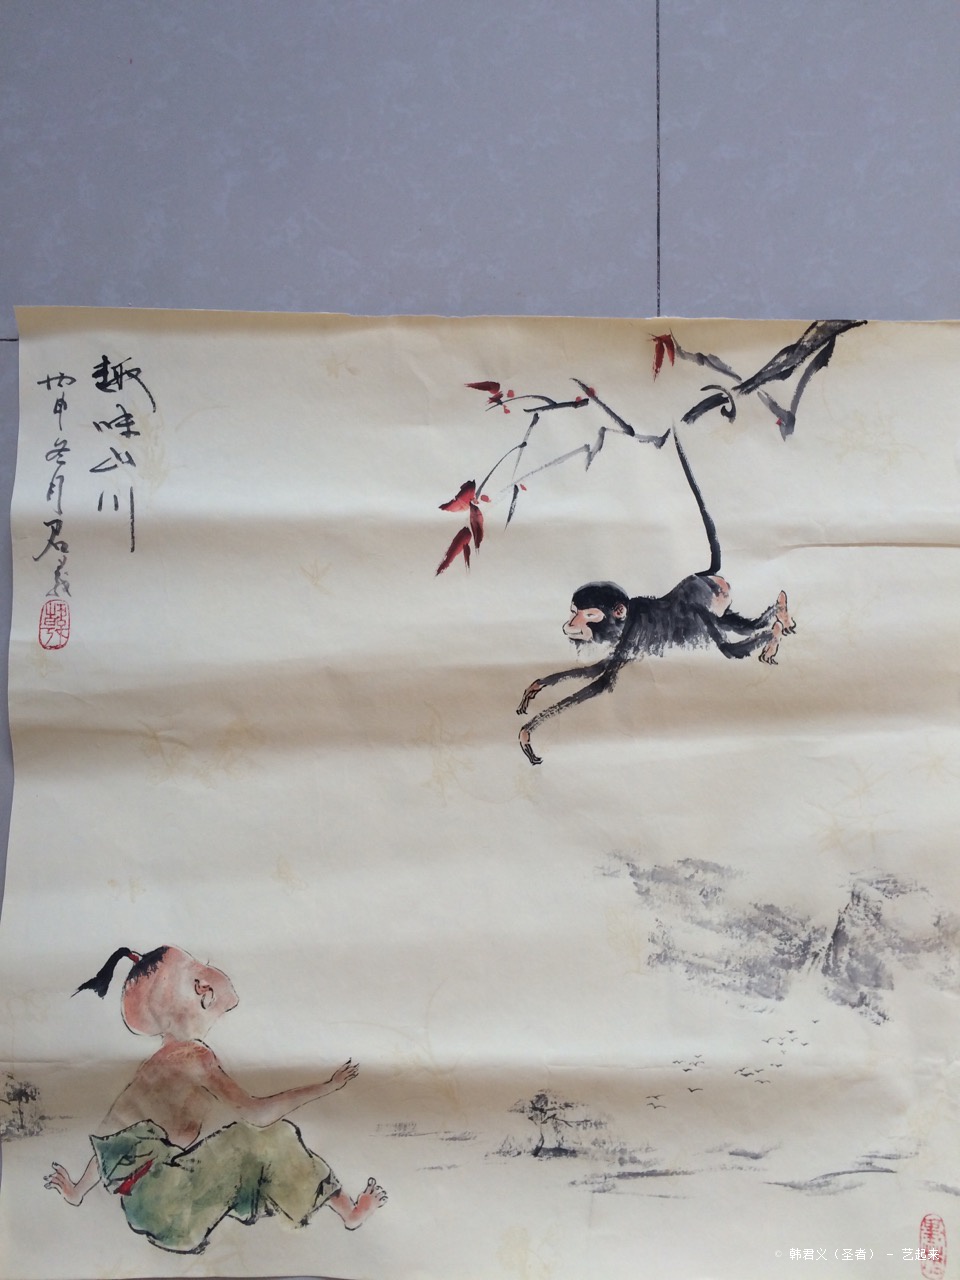 趣味山川
丙申冬月君義
© 韩君义（圣者） - 艺起来